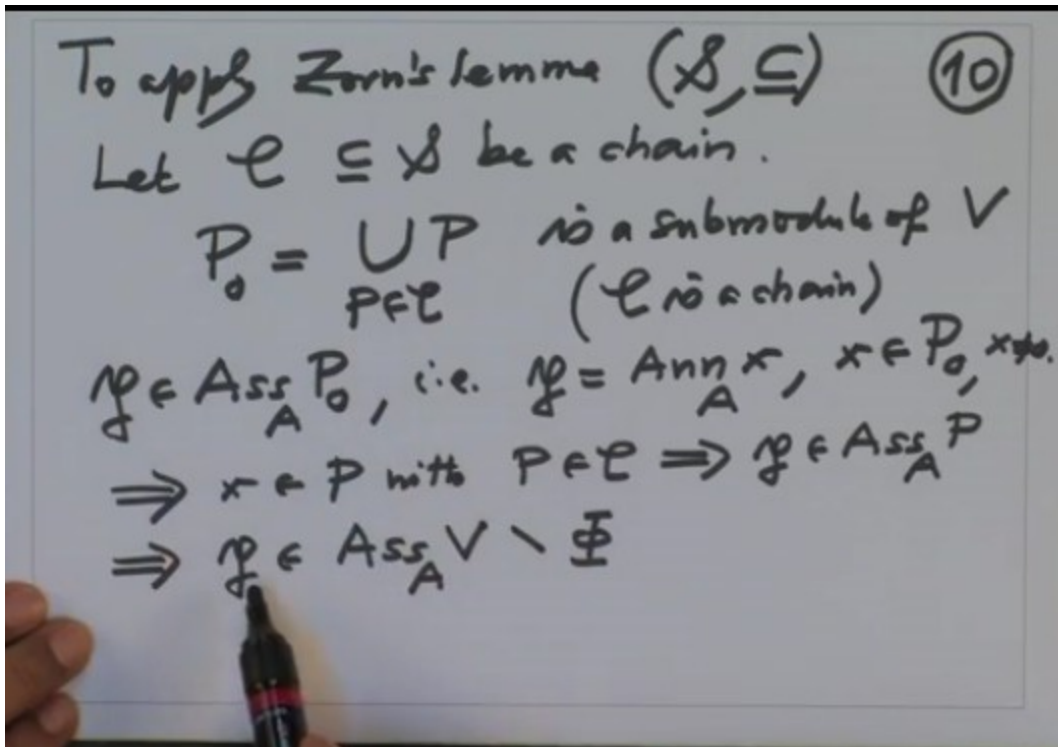 To apply Zorn's lemma (𝒮, ⊆) ⑩
Let 𝒞 ⊆ 𝒮 be a chain.
P₀ = ∪ P is a submodule of V
P∈𝒞 (𝒞 is a chain)
𝔭 ∈ Ass_A P₀, i.e. 𝔭 = Ann_A x, x ∈ P₀, x≠0.
⇒ x ∈ P with P ∈ 𝒞 ⇒ 𝔭 ∈ Ass_A P
⇒ 𝔭 ∈ Ass_A V \ Φ